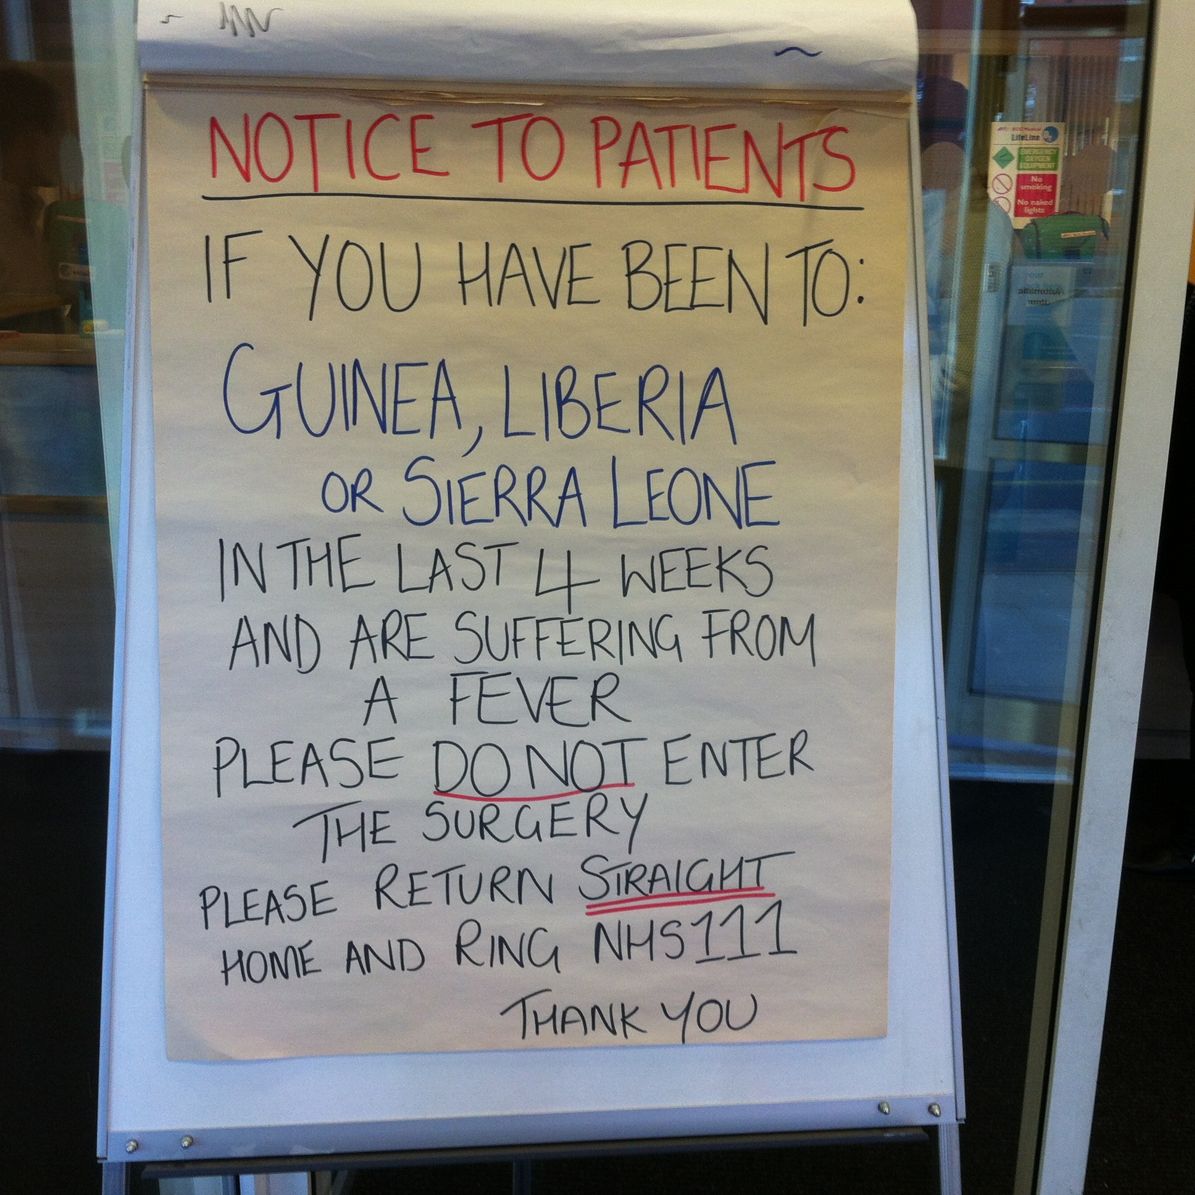 NOTICE TO PATIENTS
IF YOU HAVE BEEN TO:
GUINEA, LIBERIA
OR SIERRA LEONE
IN THE LAST 4 WEEKS
AND ARE SUFFERING FROM
A FEVER
PLEASE DO NOT ENTER
THE SURGERY
PLEASE RETURN STRAIGHT
HOME AND RING NHS111
THANK YOU
LifeLine
EMERGENCY
OXYGEN
EQUIPMENT
No
smoking
No naked
lights